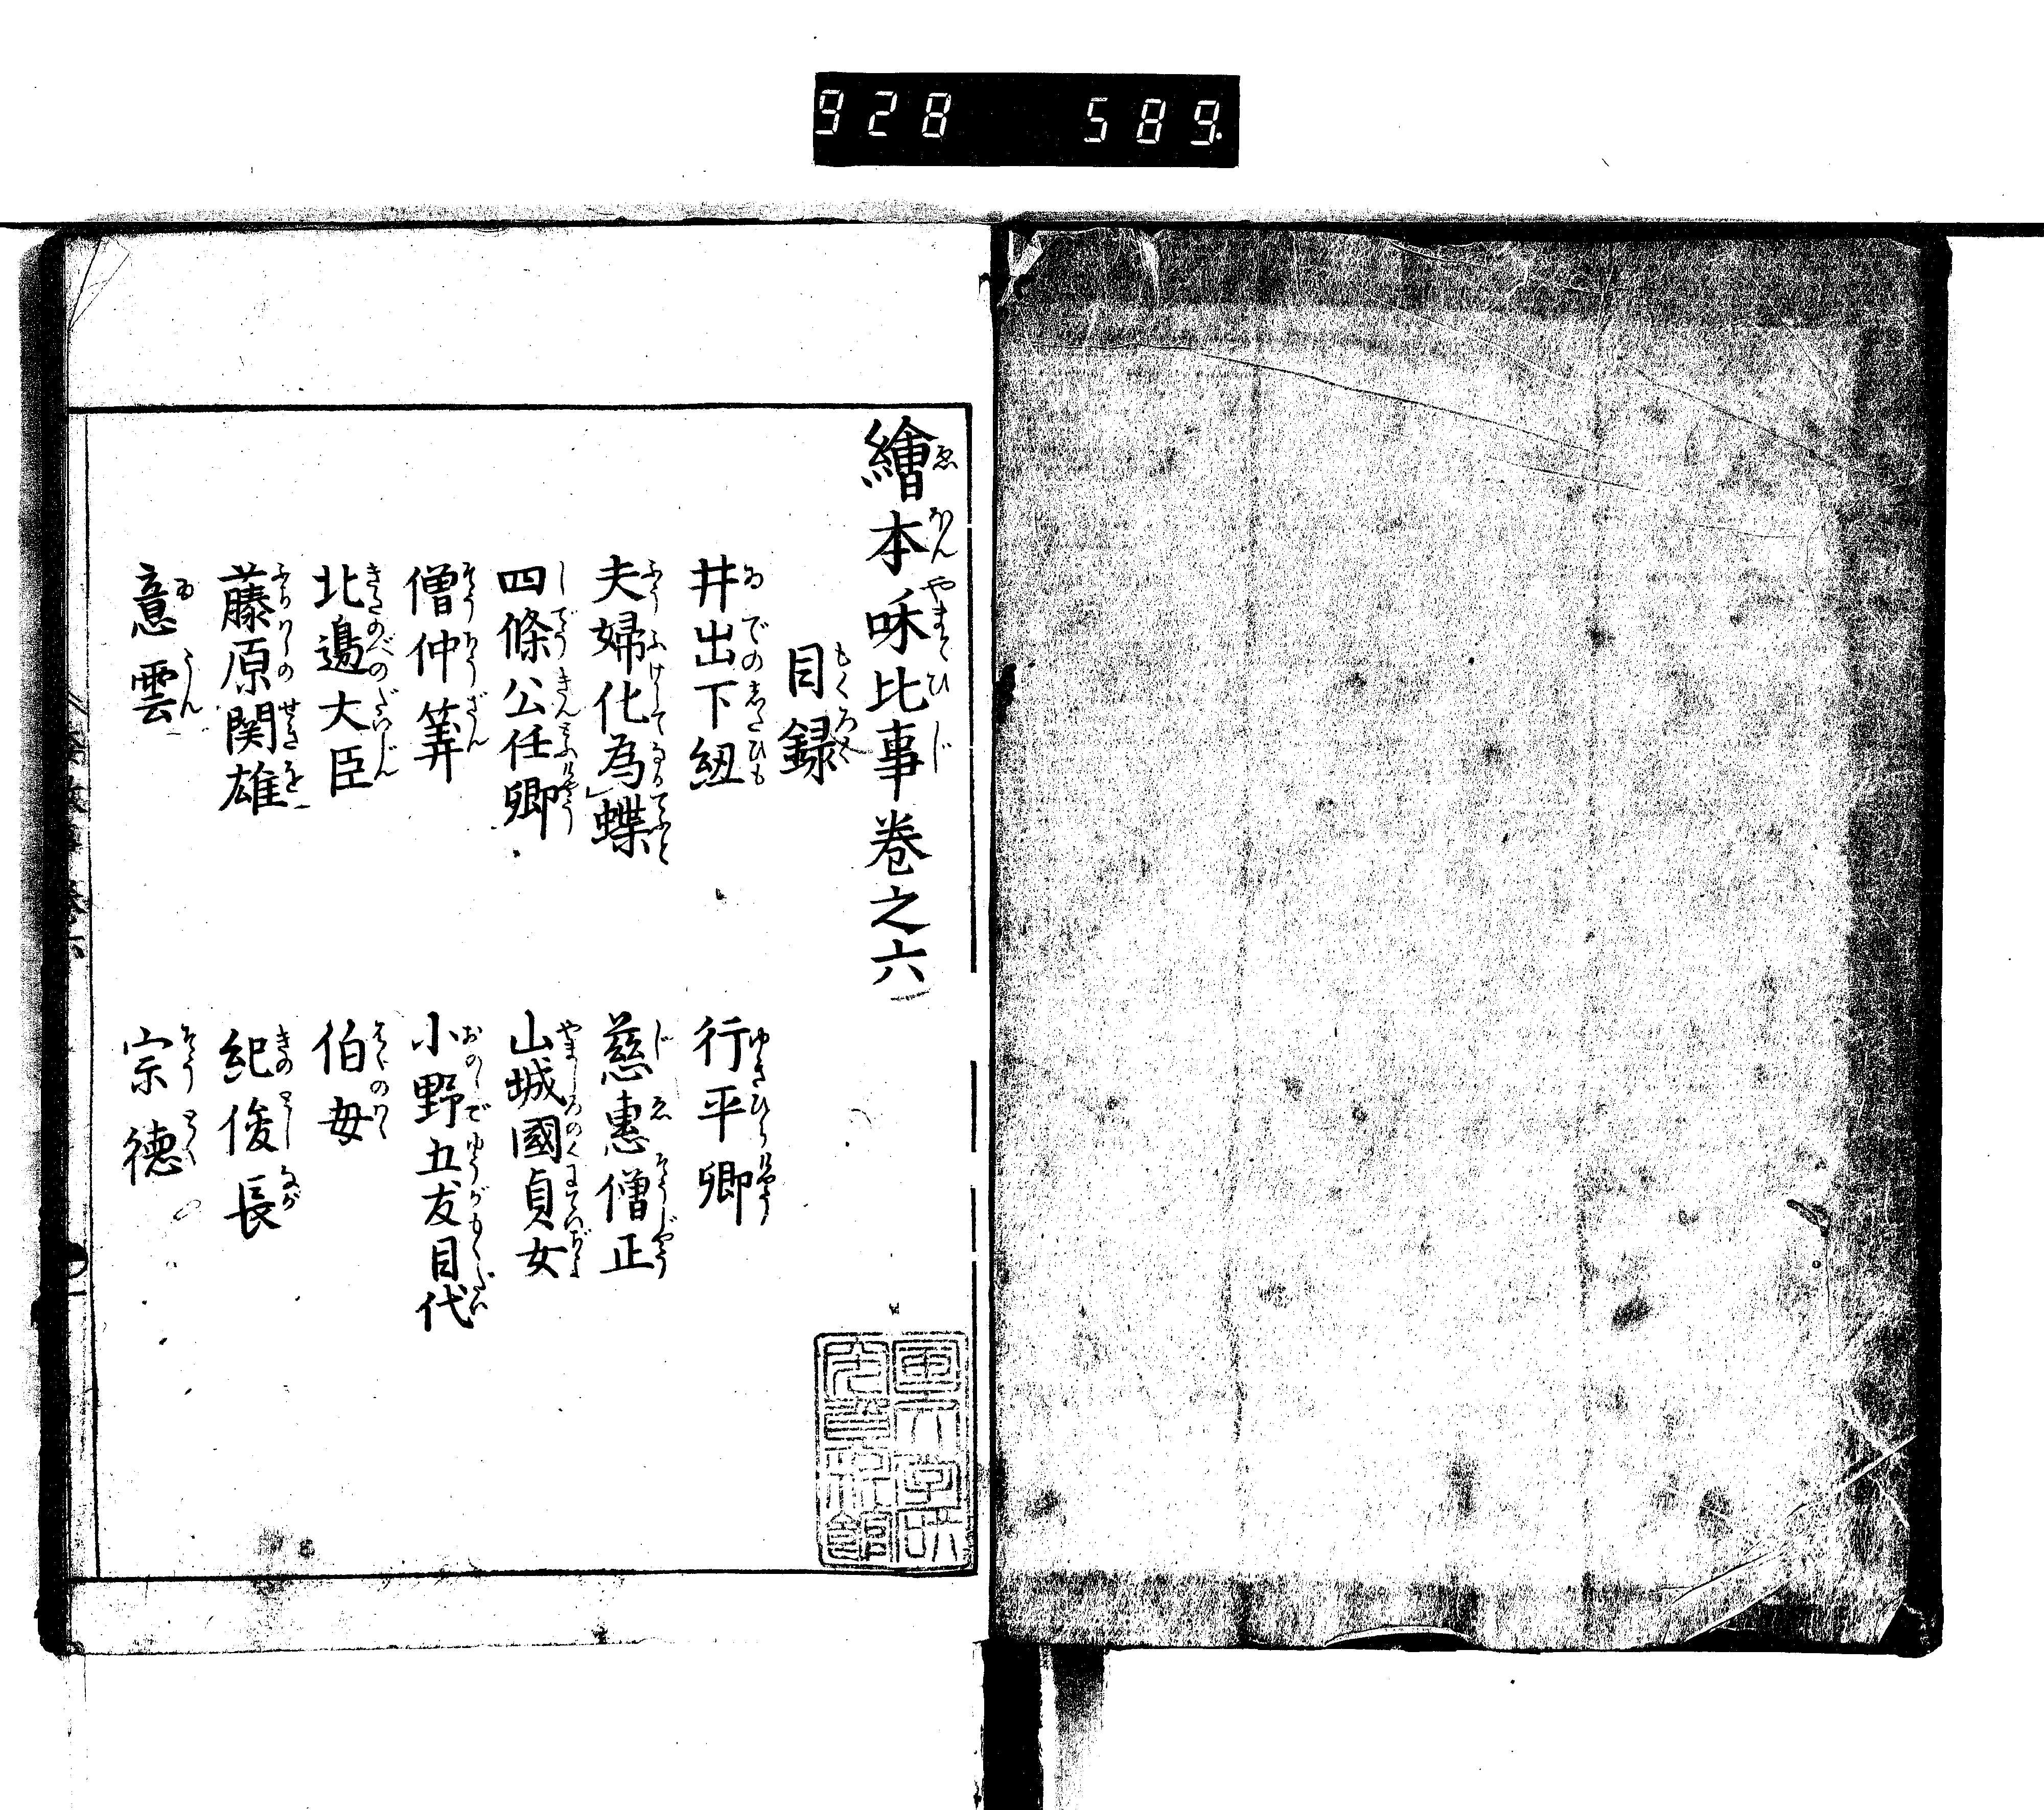 928 589.
繪本咊比事卷之六
目録
井出下紐
行平卿
夫婦化為蝶
慈惠僧正
四條公任卿
山城國貞女
僧仲筭
小野五友目代
北邉大臣
伯母
藤原関雄
紀俊長
意雲
宗德